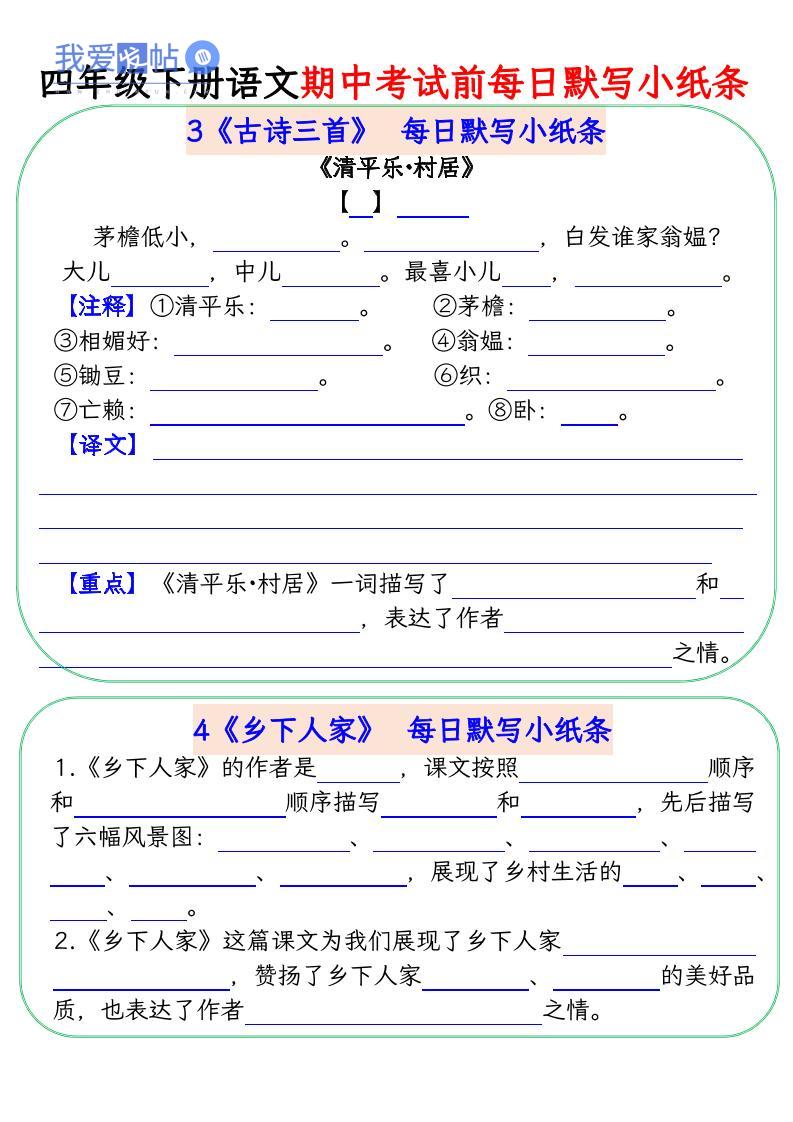 我爱发帖
四年级下册语文期中考试前每日默写小纸条
3《古诗三首》 每日默写小纸条
《清平乐·村居》
【__】______
茅檐低小，__________。______________，白发谁家翁媪？
大儿________，中儿________。最喜小儿____，____________。
【注释】①清平乐：_______。 ②茅檐：___________。
③相媚好：_________________。 ④翁媪：___________。
⑤锄豆：______________。 ⑥织：_________________。
⑦亡赖：__________________________。⑧卧：_____。
【译文】________________________________________________
____________________________________________________________
__________________________________________________________
________________________________________________________
【重点】《清平乐·村居》一词描写了____________________和__
__________________________，表达了作者____________________
____________________________________________________之情。
4《乡下人家》 每日默写小纸条
1.《乡下人家》的作者是_______，课文按照_______________顺序
和_________________顺序描写_________和_________，先后描写
了六幅风景图：___________、___________、___________、______
____、__________、__________，展现了乡村生活的____、____、
____、____。
2.《乡下人家》这篇课文为我们展现了乡下人家________________
______________，赞扬了乡下人家_________、_________的美好品
质，也表达了作者________________________之情。